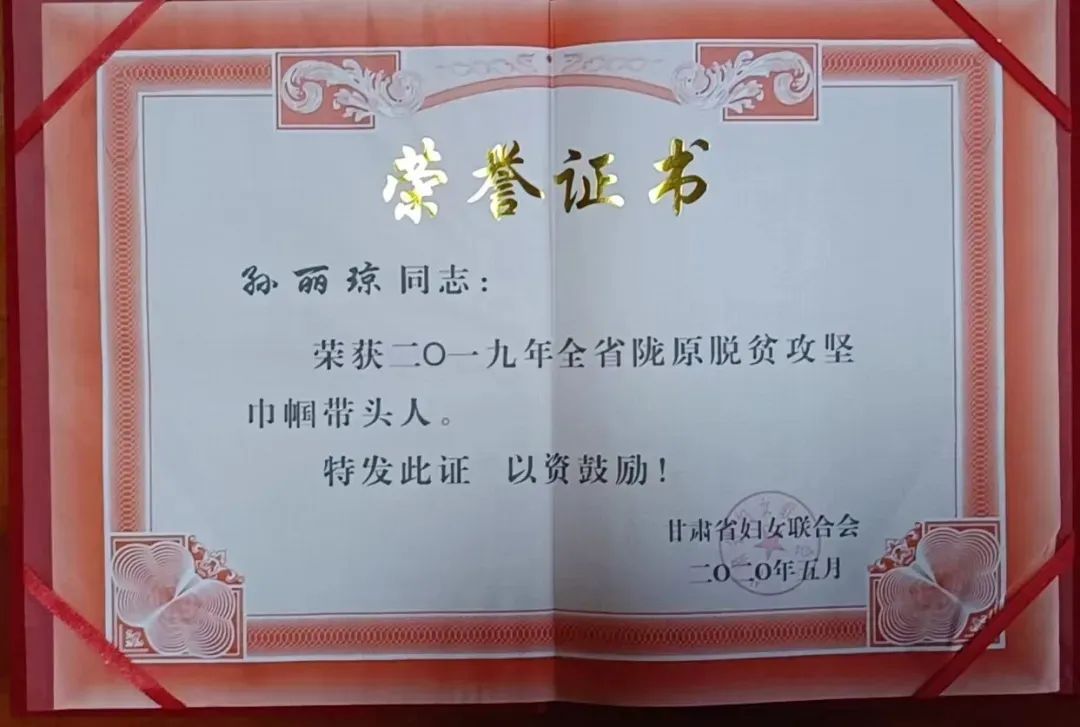 荣誉证书
孙丽琼同志：
荣获二〇一九年全省陇原脱贫攻坚
巾帼带头人。
特发此证 以资鼓励！
甘肃省妇女联合会
二〇二〇年五月